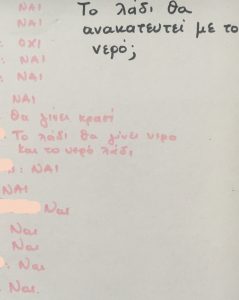 Το λάδι θα
ανακατευτεί με το
νερό;
ΝΑΙ
ΝΑΙ
: ΟΧΙ
: ΝΑΙ
: ΝΑΙ
ΝΑΙ
: Θα γίνει κρασί
: Το λάδι θα γίνει νερο
και το νερό λάδι
: ΝΑΙ
ΝΑΙ
Ναι
Ναι
Ναι
: Ναι
: Ναι.